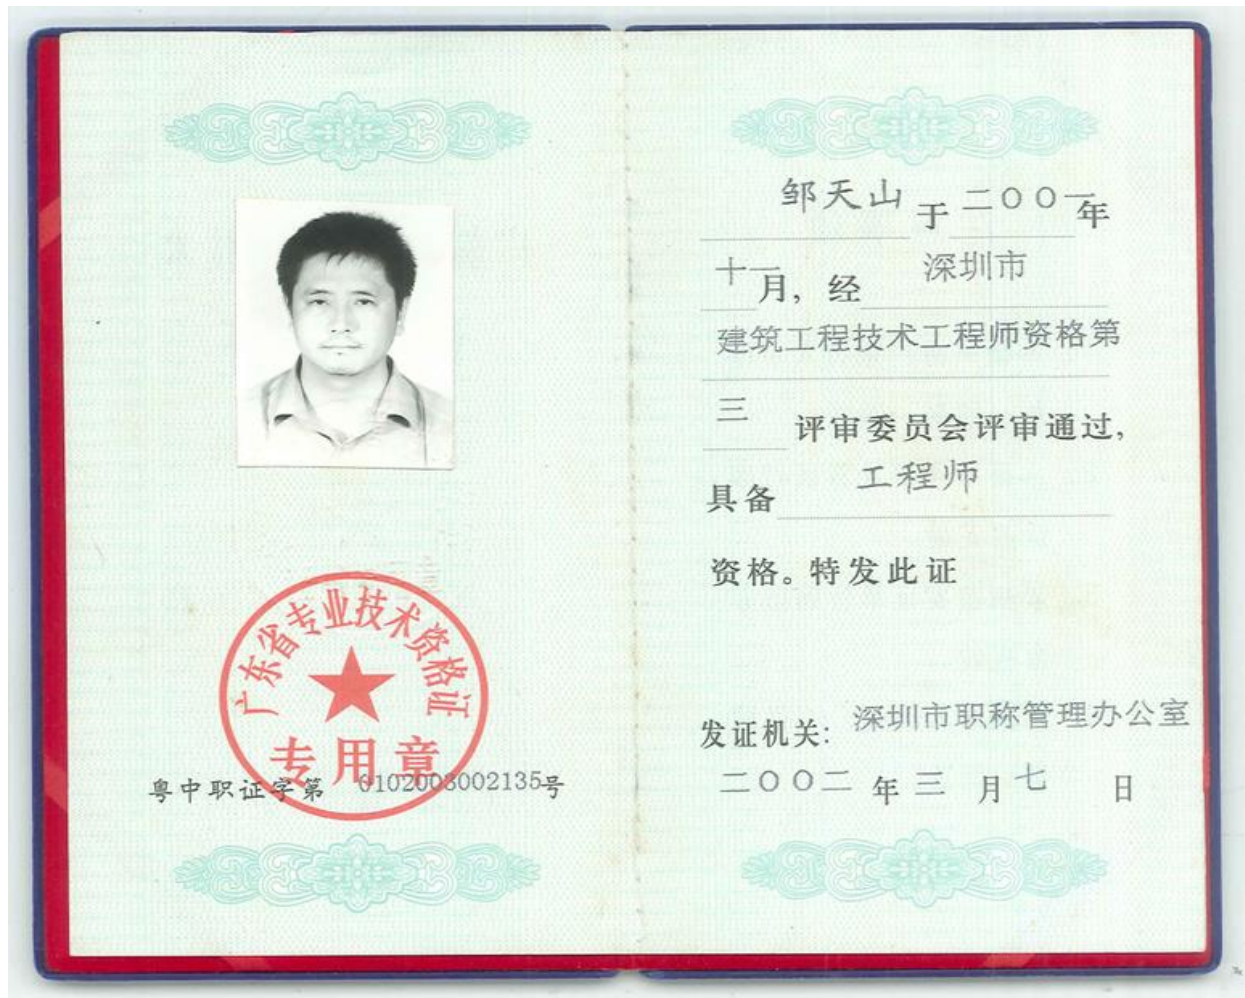 广东省专业技术资格证
专用章
粤中职证字第 0102003002135号
邹天山 于 二〇〇一年
十一月, 经 深圳市
建筑工程技术工程师资格第
三 评审委员会评审通过,
具备 工程师
资格。特发此证
发证机关: 深圳市职称管理办公室
二〇〇二 年 三 月 七 日